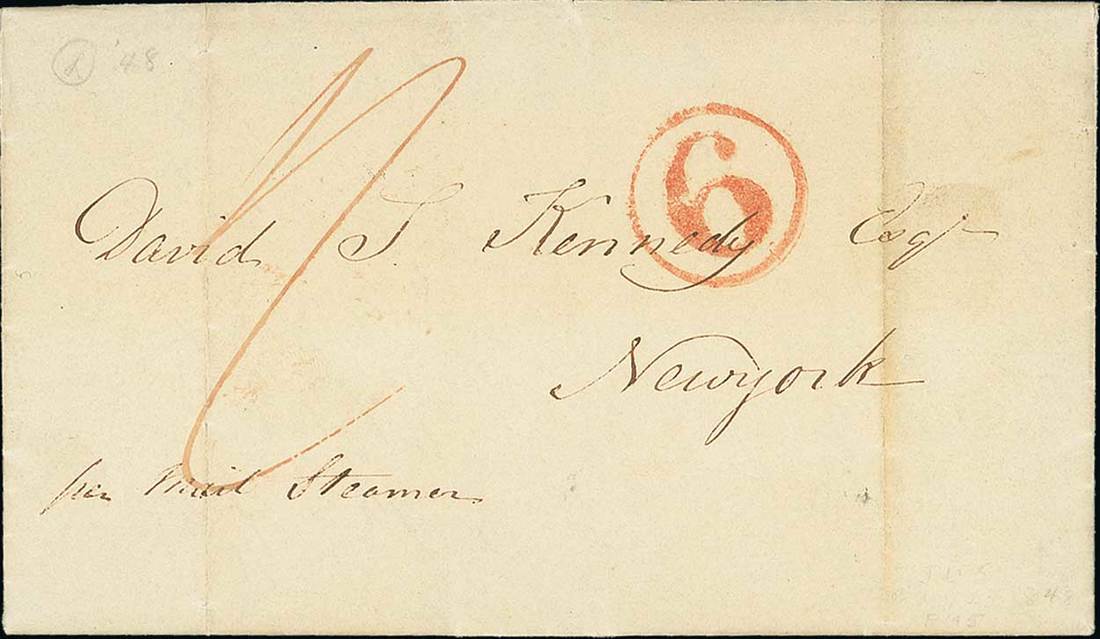 '48
6
David S Kennedy Esqr
Newyork
per Mail Steamer